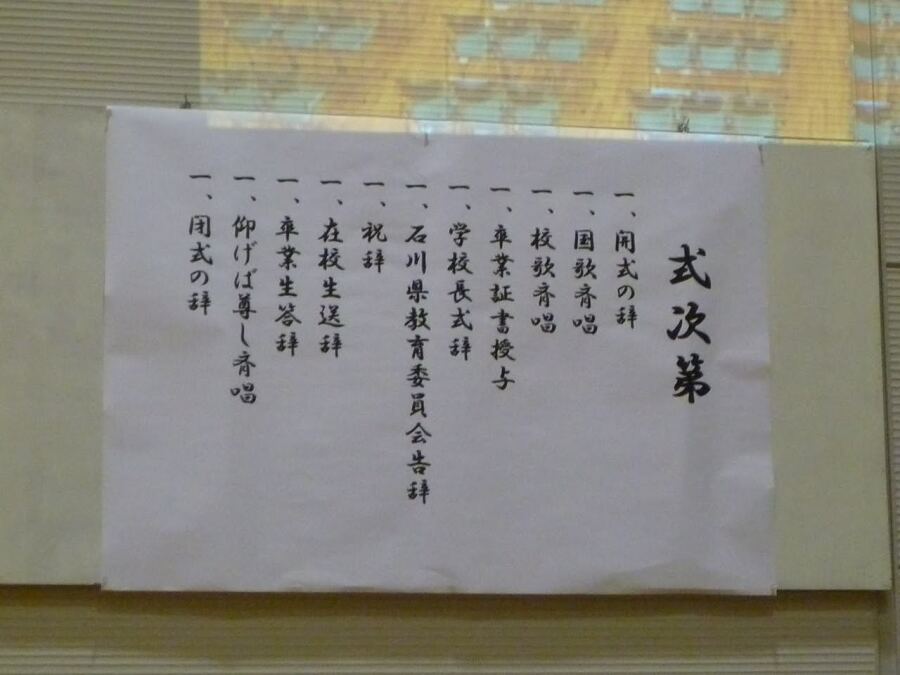 式次第
一、開式の辞
一、国歌斉唱
一、校歌斉唱
一、卒業証書授与
一、学校長式辞
一、石川県教育委員会告辞
一、祝辞
一、在校生送辞
一、卒業生答辞
一、仰げば尊し斉唱
一、閉式の辞